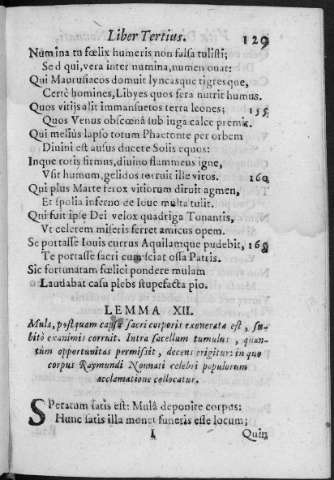 Liber Tertius. 129
Numina tu fœlix humeris non falsa tulisti;
Sed qui, vera inter numina, numen ouat:
Qui Maurusiacos domuit lyncasque tigresque,
Certè homines, Libyes quos fera nutrit humus.
Quos vitijs alit immansuetos terra leones; 155
Quos Venus obscœnâ sub iuga calce premit.
Qui melius lapso totum Phaetonte per orbem
Diuini est ausus ducere Solis equos:
Inque rotis firmus, diuino flammeus igne,
Vsit humum, gelidos torruit ille viros. 160
Qui plus Marte ferox vitiorum diruit agmen,
Et spolia inferno de Ioue multa tulit.
Qui fuit ipse Dei velox quadriga Tonantis,
Vt celerem miseris ferret amicus opem.
Se portasse Iouis currus Aquilamque pudebit, 165
Te portasse sacri cum sciat ossa Patris.
Sic fortunatam fœlici pondere mulam
Laudabat casu plebs stupefacta pio.
LEMMA XII.
Mula, postquam capsâ sacri corporis exonerata est, su-
bitò exanimis corruit. Intra sacellum tumulus, quan-
tùm opportunitas permisit, decens erigitur: in quo
corpus Raymundi Nonnati celebri populorum
acclamatione collocatur.
SPeratum satis est: Mulâ deponite corpus:
Hunc satis illa monet funeris esse locum;
I Quin